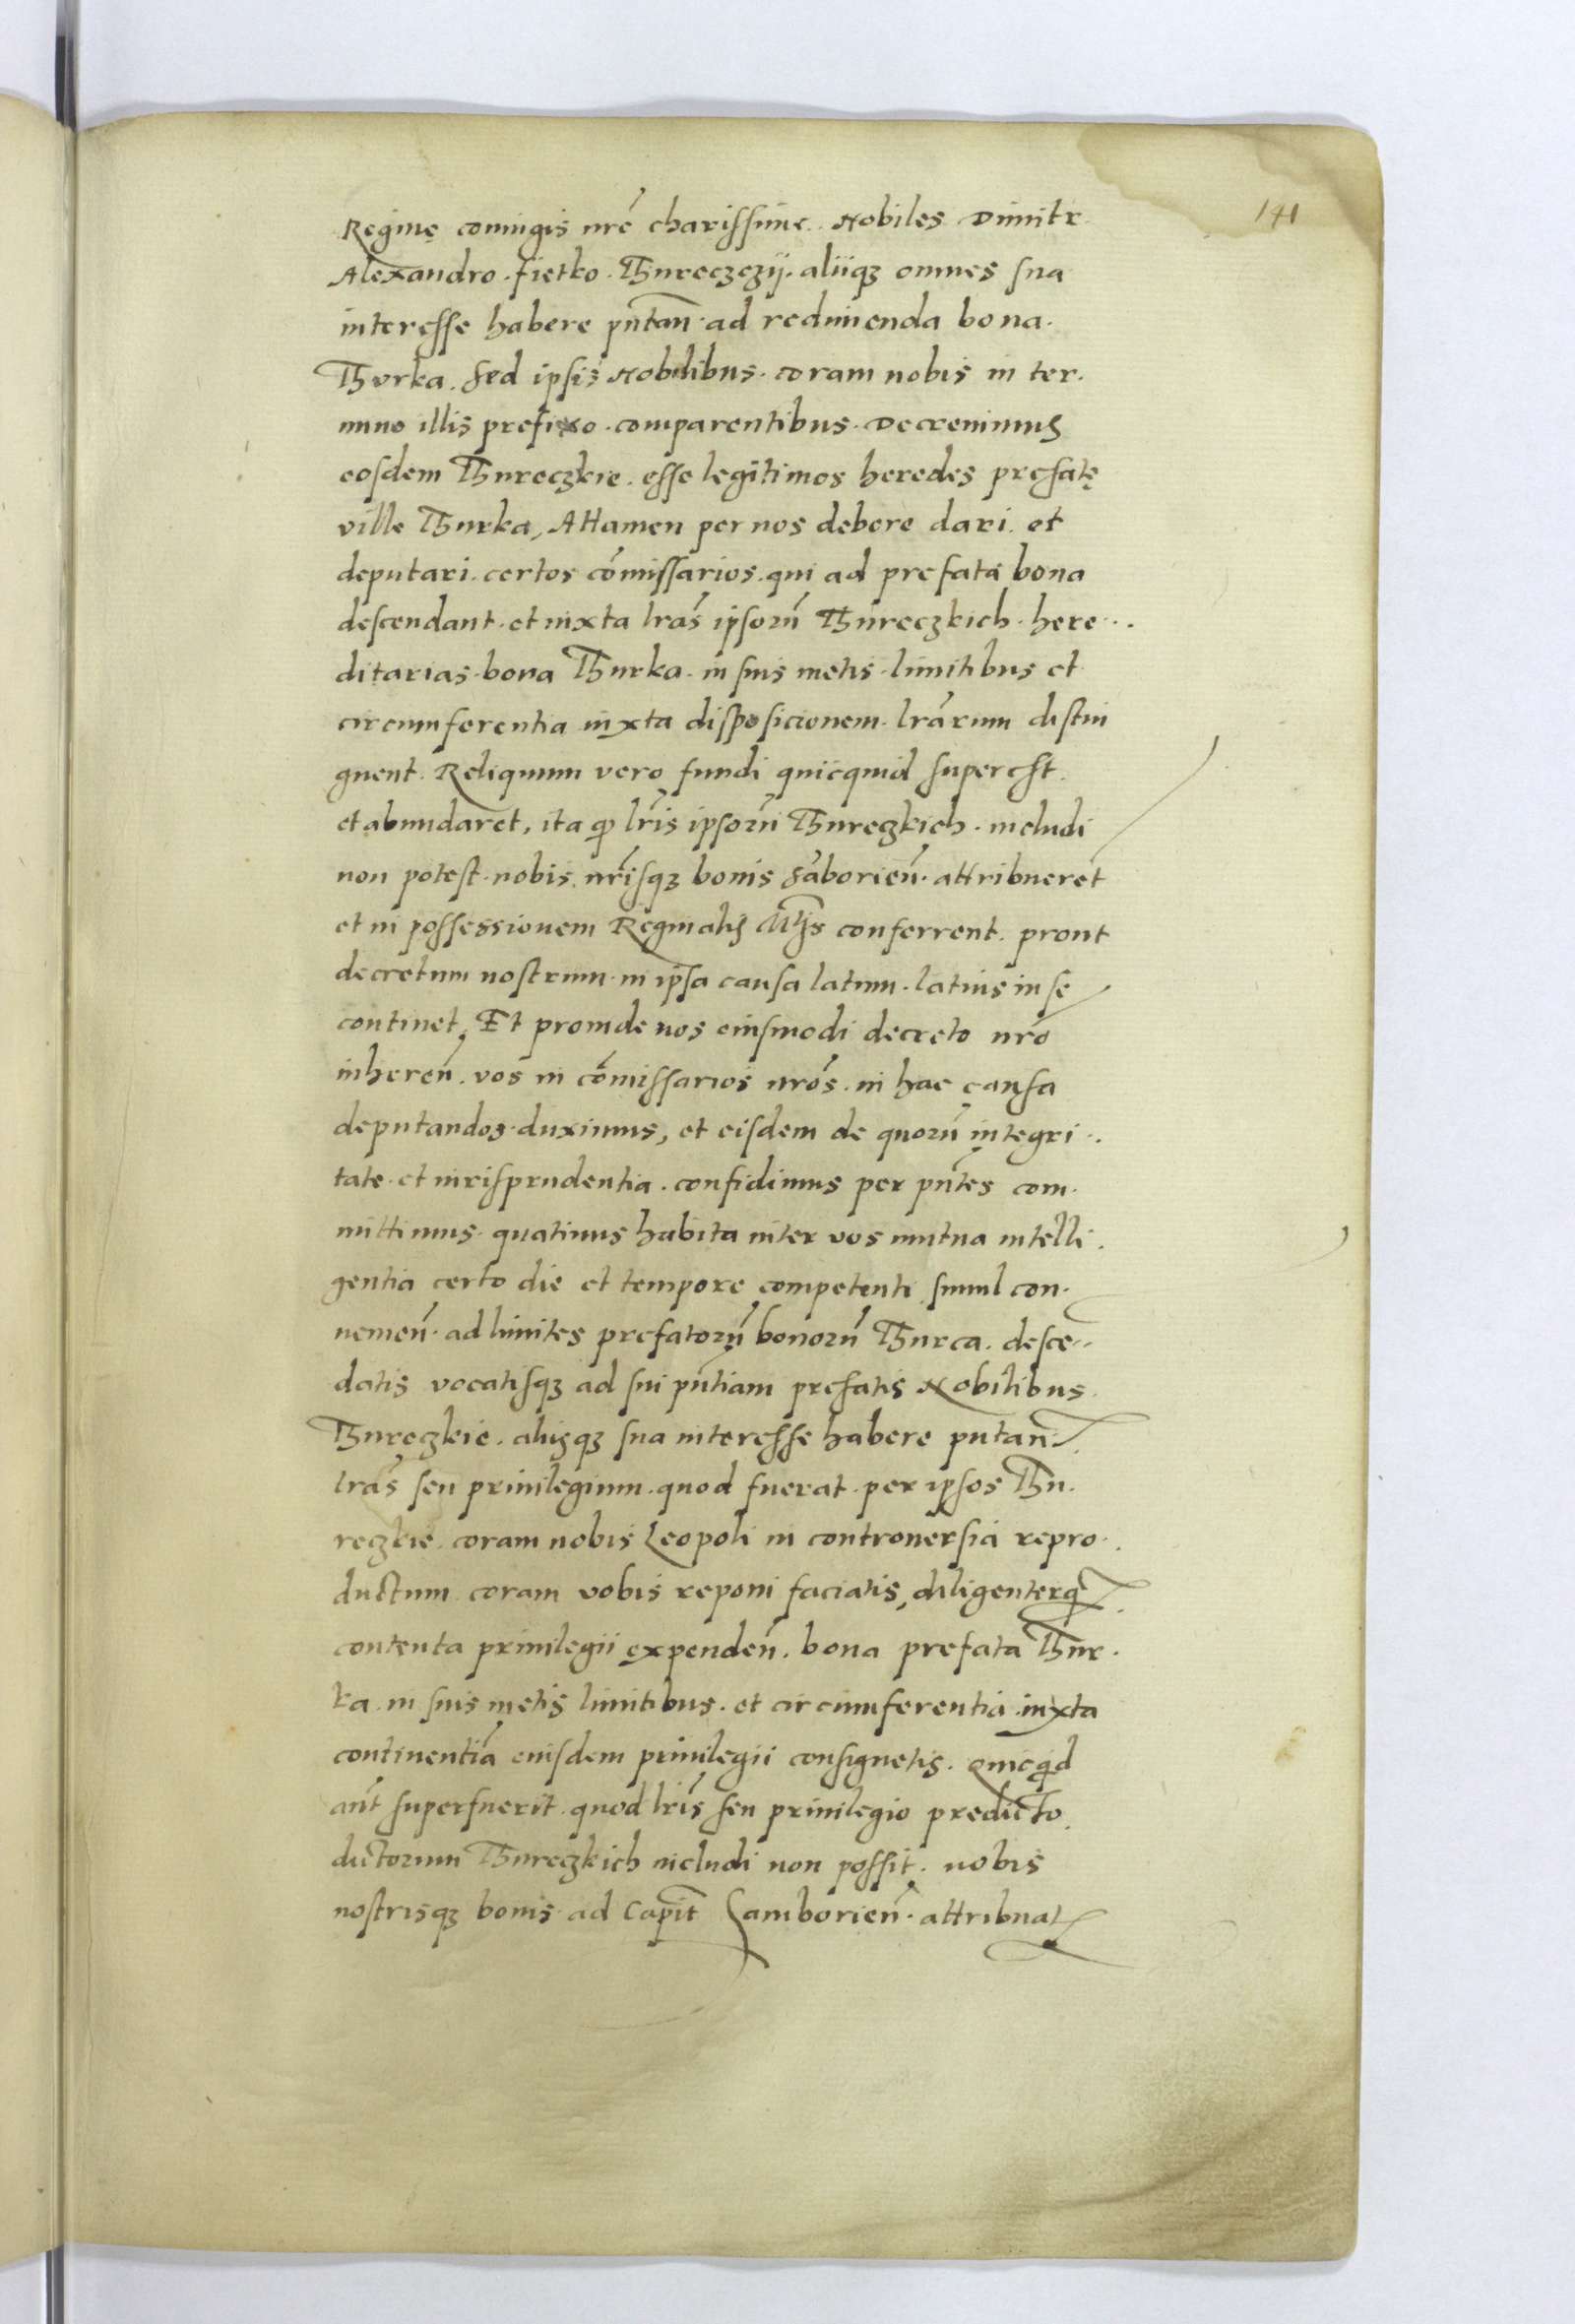 141
Reginę coniugis nrē charissime. Nobiles Dimitr.
Alexandro. fietko. Thureczczij. aliiqꝫ omnes sua
interesse habere putan̄. ad redimenda bona.
Thurka. sed ipsis Nobilibus. coram nobis in ter.
mino illis prefixo. comparentibus. Decreuimus
eosdem Thureczkie. esse legitimos heredes prefatę
ville Thurka, Attamen per nos debere dari. et
deputari. certos cōmissarios. qui ad prefata bona
descendant. et iuxta lrās ipsorū Thureczkich. here..
ditarias. bona Thurka. in suis metis. limitibus et
circumferentia iuxta disposicionem. lrārum distin
guent. Reliquum vero fundi quicquid superest.
et abundaret, ita ꝙ lrīs ipsorū Thureczkich. includi
non potest. nobis. nrīsqꝫ bonis sāborien̄. attribueret
et in possessionem Reginalis Mtīs conferrent. prout
decretum nostrum. in ipsa causa latum. latius in se
continet, Et proinde nos eiusmodi decreto nrō
inheren̄. vos in cōmissarios nrōs. in hac causa
deputandos. duximus, et eisdem de quorū integri..
tate. et iurisprudentia. confidimus per pn̄tes com.
mittimus. quatinus habita inter vos mutua intelli.
gentia certo die et tempore competenti simul con.
uenien̄. ad limites prefatorū bonorū Thurca. desce..
datis vocatisqꝫ ad sui pn̄tiam prefatis Nobilibus.
Thureczkie. aliisqꝫ sua interesse habere putan̄.
lrās seu priuilegium. quod fuerat. per ipsos Thu.
reczkie. coram nobis Leopoli in controuersia repro..
ductum coram vobis reponi faciatis, diligenterqꝫ
contenta priuilegii expenden̄. bona prefata Thur.
ka. in suis metis limitibus. et circumferentia iuxta
continentiā eiusdem priuilegii consignetis. Quicqd
aūt superfuerit. quod lrīs seu priuilegio predicto.
dictorum Thureczkich includi non possit. nobis
nostrisqꝫ bonis ad Capit̄ Samborien̄. attribuat